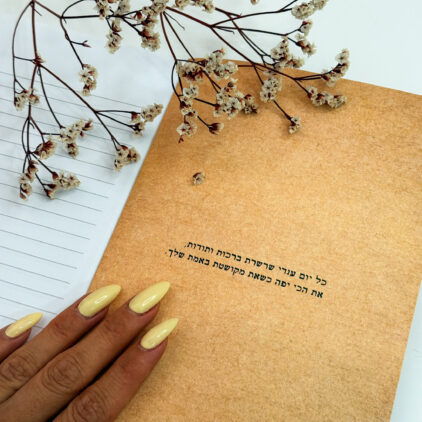 כל יום ענדי שרשרת ברכות ותודות.
את הכי יפה כשאת מקושטת באמת שלך.